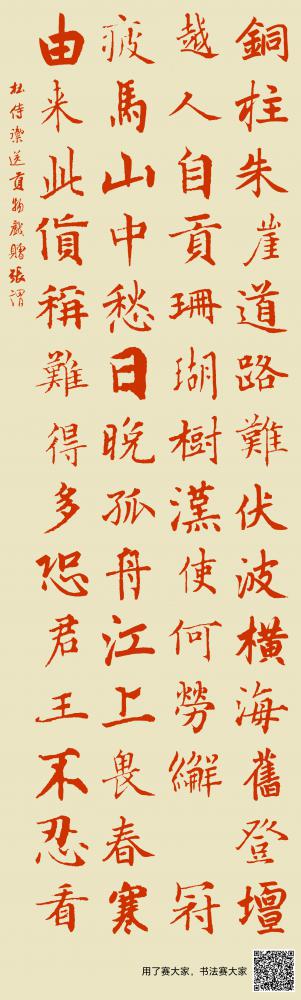 銅柱朱崖道路難伏波橫海舊登壇
越人自貢珊瑚樹漢使何勞繲 冠
疲馬山中愁日晚孤舟江上畏春寒
由来此貨稱難得多恐君王不忍看
杜侍禦送貢物戲贈張謂
用了赛大家，书法赛大家